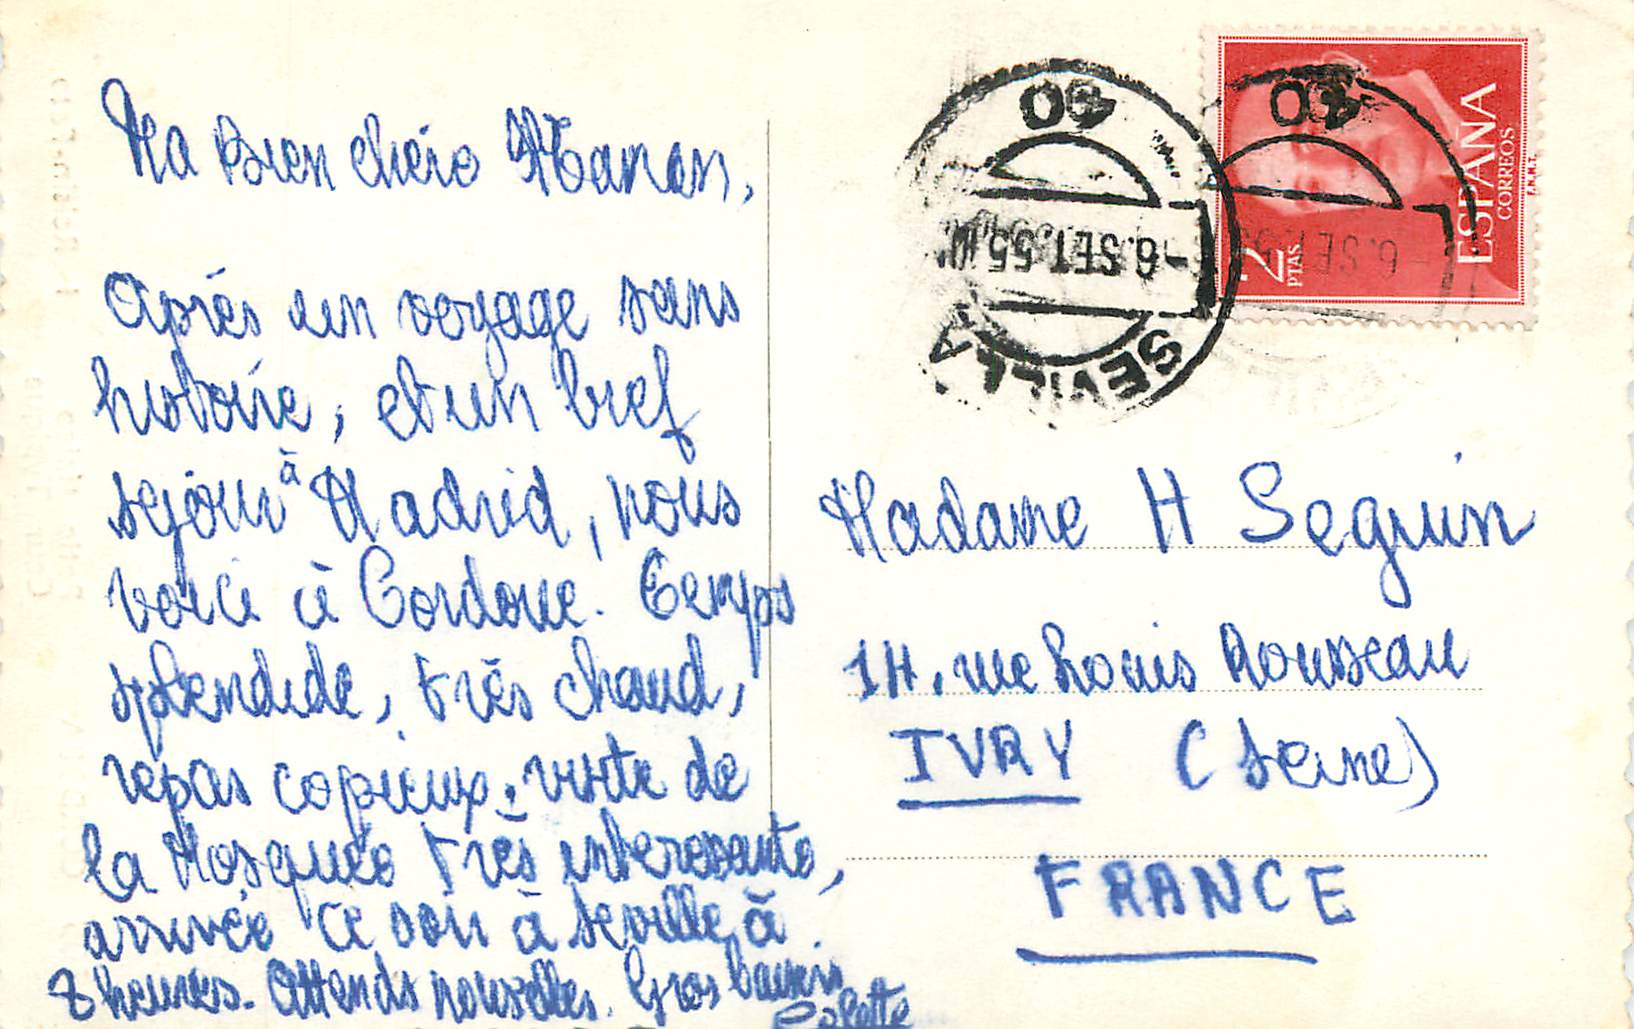 Ma bien chère Maman,
Après un voyage sans
histoire, et un bref
séjour à Madrid, nous
voici à Cordoue. Temps
splendide, très chaud,
repas copieux, visite de
la Mosquée très intéressante,
arrivée ce soir à Séville à
8 heures. Attends nouvelles. Gros baisers
Colette
40 40
-6.SET.55
-6.SET.5
SEVILLA
2 PTAS
ESPAÑA
CORREOS
F.N.M.T.
Madame H Seguin
14, rue Louis Rousseau
IVRY (Seine)
FRANCE